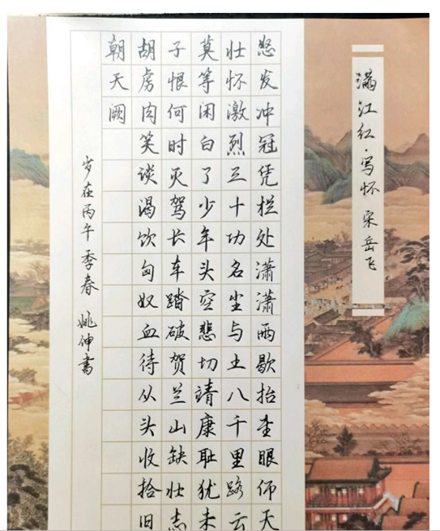 满江红·写怀 宋岳飞
怒发冲冠凭栏处潇潇雨歇抬望眼仰天
壮怀激烈三十功名尘与土八千里路云
莫等闲白了少年头空悲切靖康耻犹未
子恨何时灭驾长车踏破贺兰山缺壮志
胡虏肉笑谈渴饮匈奴血待从头收拾旧
朝天阙
岁在丙午季春 姚伸书